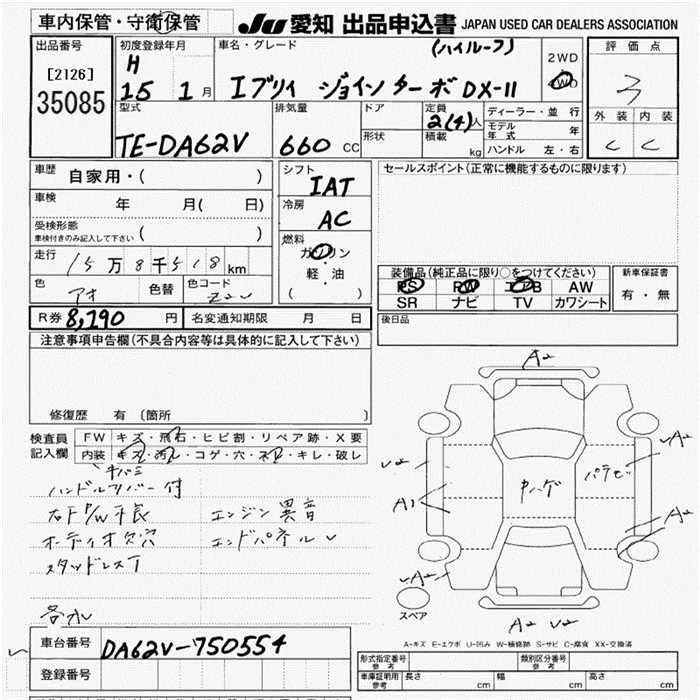 車内保管・守衛保管
JU 愛知 出品申込書 JAPAN USED CAR DEALERS ASSOCIATION
出品番号
[2126]
35085
初度登録年月
H
15 1月
車名・グレード
(ハイルーフ)
エブリィ ジョインターボ DX-II
2WD
4WD
評価点
3
外装 内装
C C
型式
TE-DA62V
排気量
660 CC
ドア
形状
定員
2(4)人
積載
kg
ディーラー・並行
モデル年式 年
ハンドル 左・右
車歴
自家用・( )
車検
年 月( 日)
受検形態
車検付きのみ記入して下さい ( )
走行
15万8千518km
色
アオ
色替
色コード
シフト
IAT
冷房
AC
燃料
ガソリン
・
軽・油
( )
セールスポイント(正常に機能するものに限ります)
装備品(純正品に限り○をつけてください)
PS PW エアB AW
SR ナビ TV カワシート
新車保証書
有・無
R券 8,190 円
名変通知期限 月 日
後日品
注意事項申告欄(不具合内容等は具体的に記入して下さい)
修復歴 有 〔箇所 〕
検査員
記入欄
FW キズ・飛石・ヒビ割・リペア跡・X要
内装 キズ・汚レ・コゲ・穴・ネリ・キレ・破レ
ハンドルカバー付
右FP/W不良 エンジン異音
オーディオ欠穴 エンドパネルレ
スタッドレスT
A2
A2
U2
A1
ウハゲ
パラセン
A2
A2
スペア
A2 U2
A-キズ E-エクボ U-凹み W-補修跡 S-サビ C-腐食 XX-交換済
車台番号 DA62V-750554
登録番号
形式指定番号
参考
類別区分番号
参考
車庫証明用
参考
長さ cm
幅 cm
高さ cm